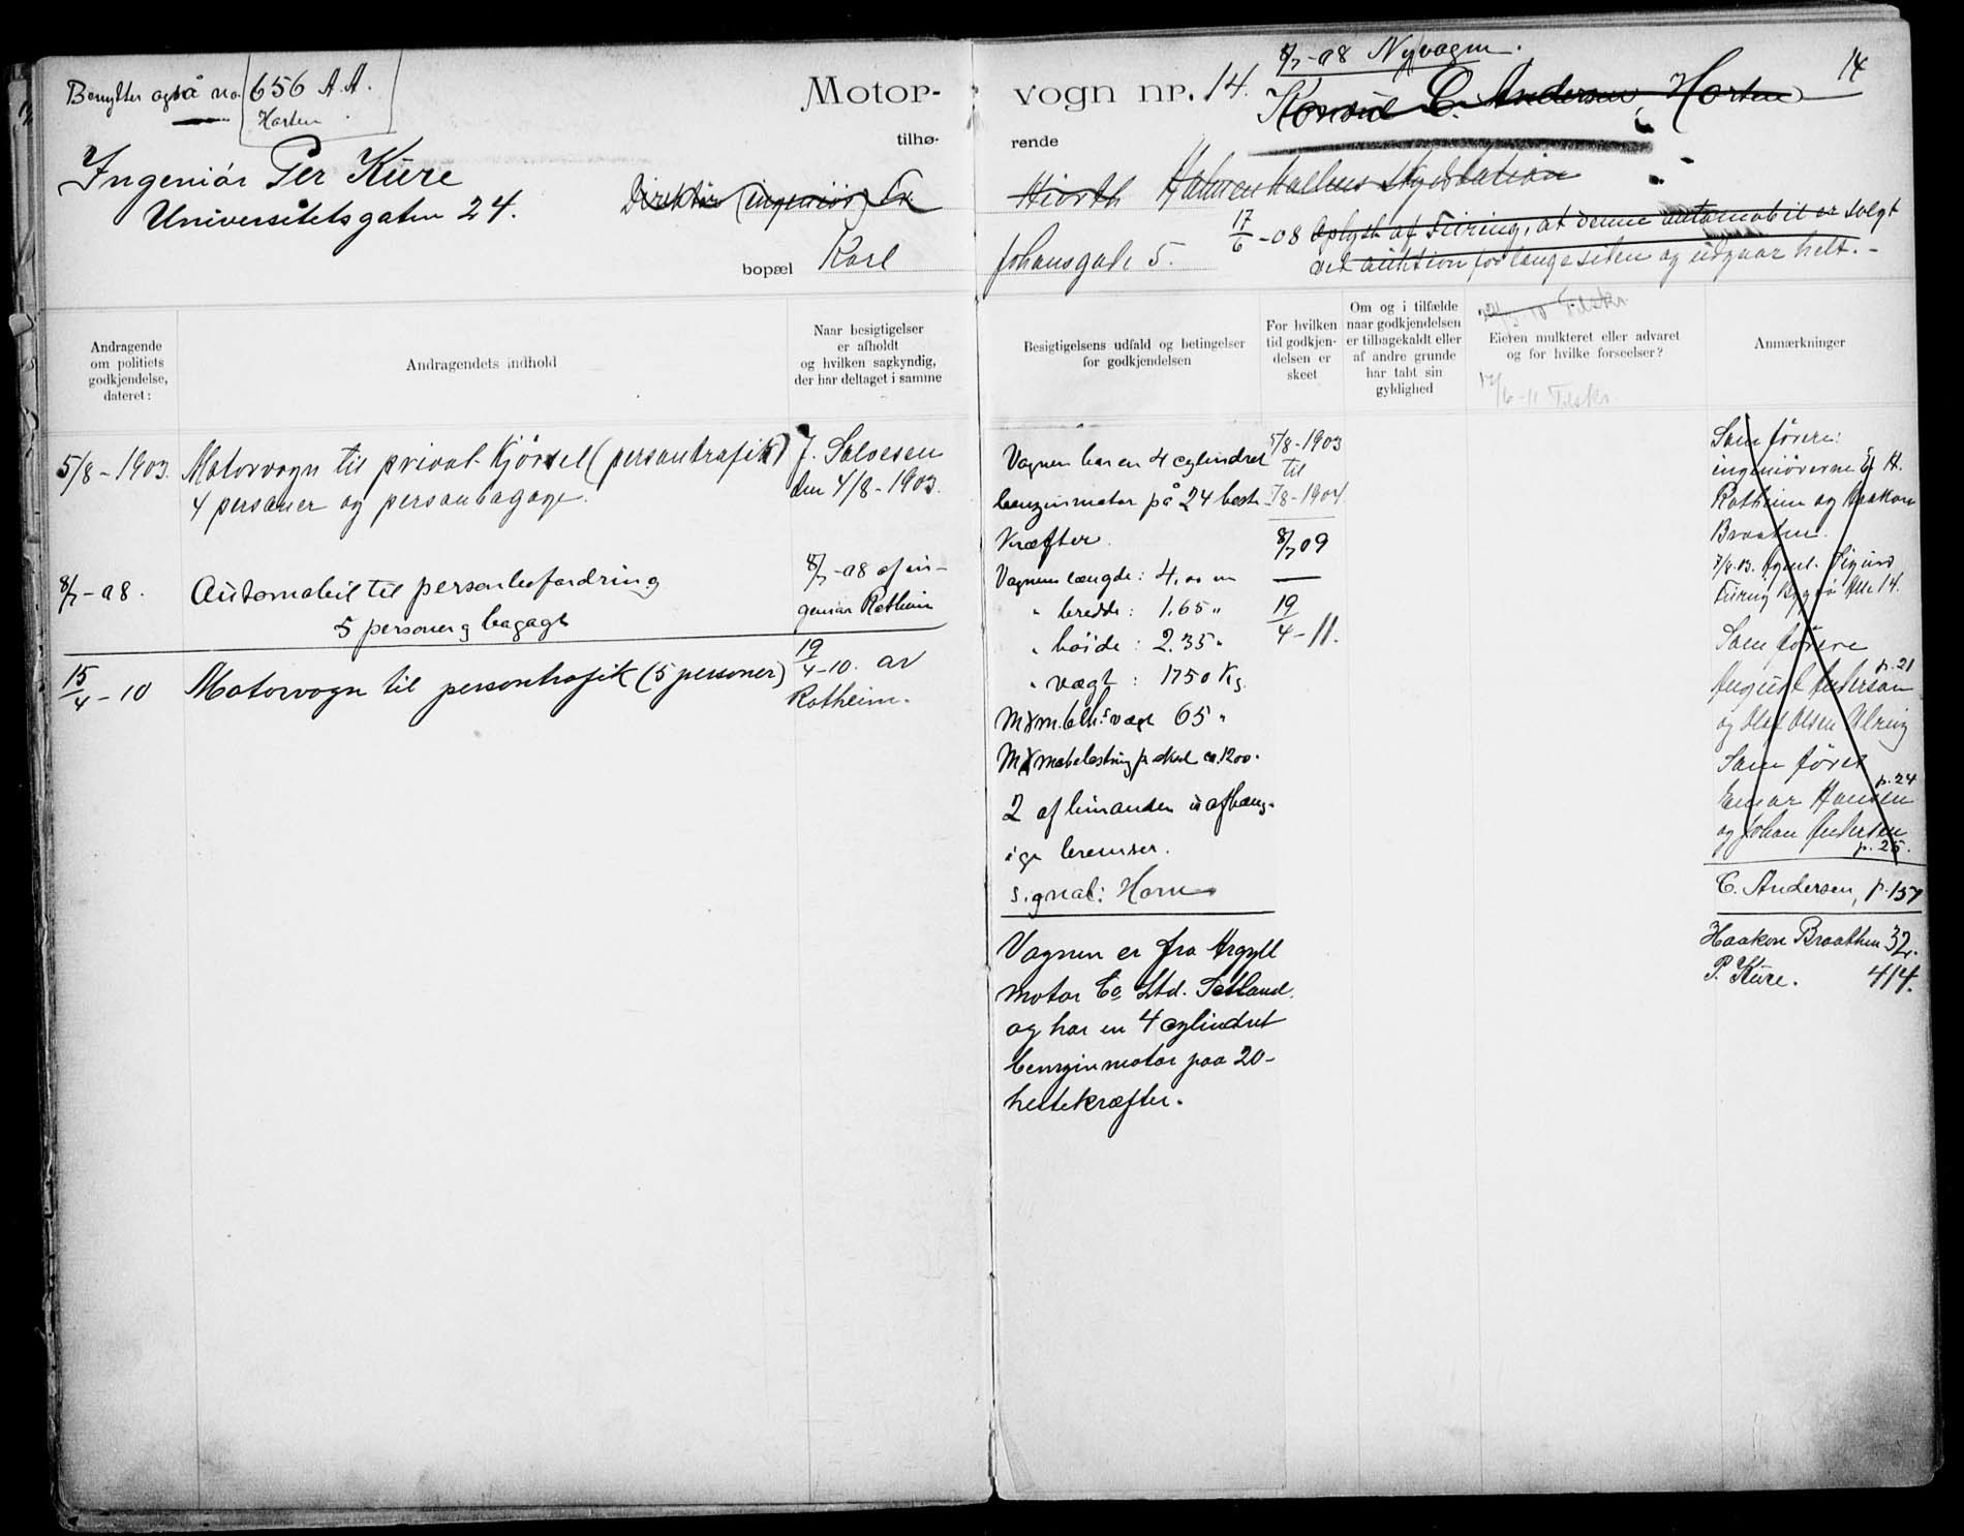 Benytter også no. 656 A.A.
Horten
Motor-
vogn nr. 14.
8/7-08 Ny vogn.
14
Konsul C. Andersen, Horten
tilhø-
rende
Ingeniör Per Kure
Universitetsgaten 24.
Direktör (ingeniör) Er.
Hiorth Holmenkollens Skydsstation
17/6-08 Oplyst af Fiiring, at denne automobil er solgt
ved auktion for længe siden og udgaar helt.-
bopæl Karl
Johansgade 5.
Andragende
om politiets
godkjendelse,
dateret:
Andragendets indhold
Naar besigtigelser
er afholdt
og hvilken sagkyndig,
der har deltaget i samme
Besigtigelsens udfald og betingelser
for godkjendelsen
For hvilken
tid godkjen-
delsen er
skeet
Om og i tilfælde
naar godkjendelsen
er tilbagekaldt eller
af andre grunde
har tabt sin
gyldighed
Eieren mulkteret eller advaret
og for hvilke forseelser?
17/6-11 Tilskr
Anmærkninger
5/8-1903.
Motorvogn til privat Kjörsel (persontrafik)
4 personer og personbagage.
J. Salvesen
den 4/8-1903.
8/7-08.
Automobil til personbefordring
5 personer og bagage
8/7-08 af in-
geniör Rotheim
15/4-10
Motorvogn til persontrafik (5 personer)
19/4-10. av
Rotheim.
Vognen har en 4 cylindret
benzinmotor på 24 heste
Kræfter.
Vognens længde: 4,00 m
" bredde: 1.65 "
" höide: 2.35 "
" vægt: 1750 Kg.
65 "
ca. 1200.
2 af hinanden uafhæng-
ige bremser.
Signal: Horn
Vognen er fra Argyll
Motor Co Ltd. Scotland.
og har en 4 cylindret
benzinmotor paa 20-
hestekræfter.
5/8-1903
til
5/8-1904.
8/7 09
19/4-11.
Som förere:
ingeniörerne E H.
Rotheim og Haakon
Braathen.
Agent Sigurd
Fiiring Bygdö Allé 14.
Som förere
p. 21
August Andersen
og Olaf Olsen Ulrig
Som förer
p. 24
Einar Hansen
og Johan Andersen
p. 25.
C. Andersen, p. 157
Haakon Braathen 32.
P. Kure. 414.